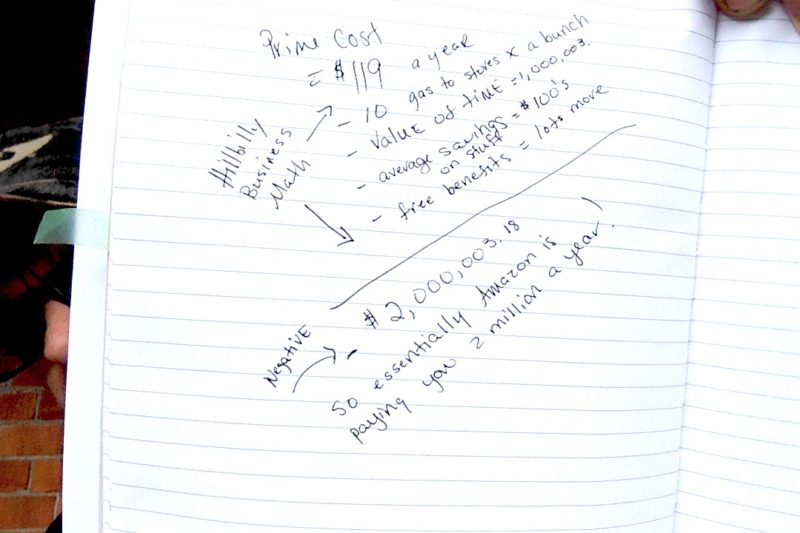 Prime Cost
= $119 a year
- 10 gas to stores x a bunch
- Value of time = 1,000,003.
- average savings = $100's
on stuff
- free benefits = lots more
Hillbilly
Business
Math
- $2,000,003.18
Negative
So essentially Amazon is
paying you 2 million a year!